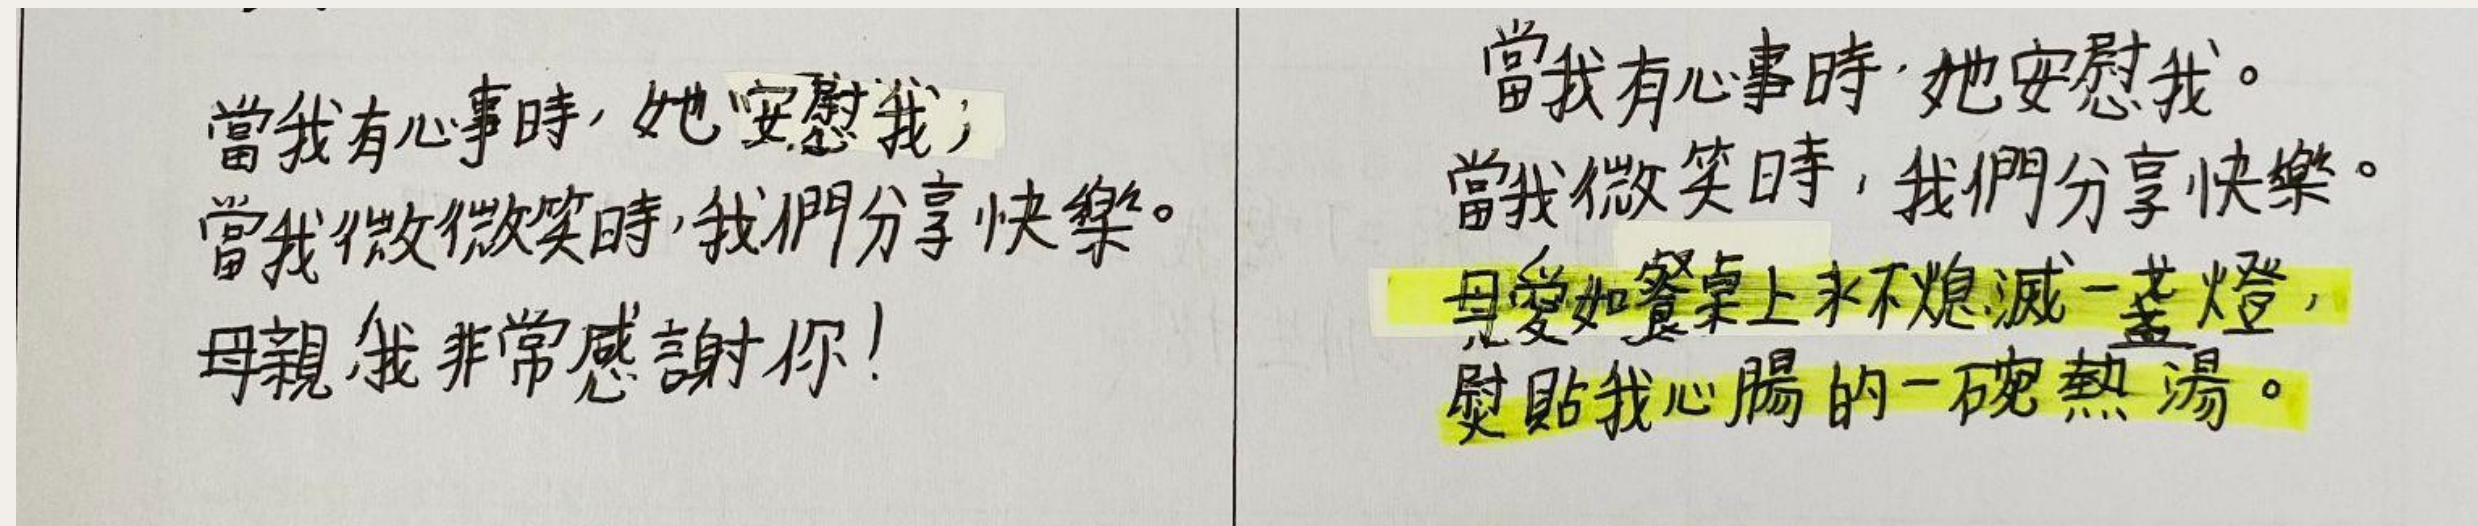 當我有心事時，她安慰我；
當我微微笑時，我們分享快樂。
母親，我非常感謝你！
當我有心事時，她安慰我。
當我微笑時，我們分享快樂。
母愛如餐桌上永不熄滅一盞燈，
熨貼我心腸的一碗熱湯。